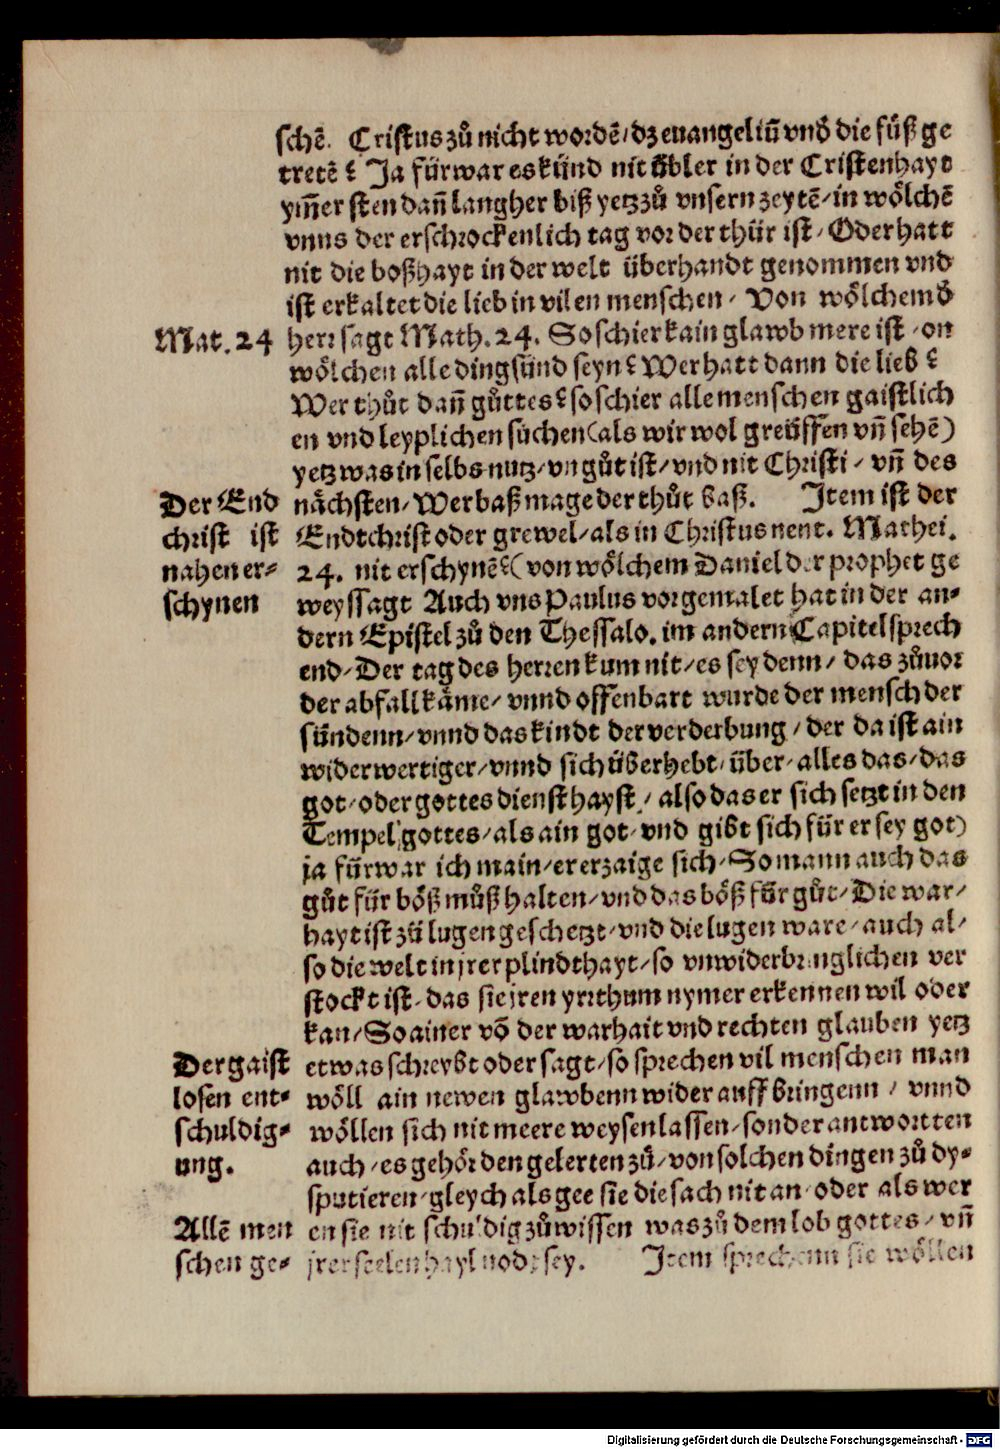 schē. Cristus zů nicht wordē/ dz euangeliū vnd die fůß ge
tretē? Ja fürwar es künd nit übler in der Cristenhayt
ym̄er sten dan̄ lang her biß yetz zů vnsern zeytē/ in wölchē
vnns der erschrockenlich tag vor der thür ist/ Oder hatt
nit die boßhayt in der welt überhandt genommen vnd
ist erkaltet die lieb in vilen menschen/ Von wölchem d̄
Mat. 24
herr sagt Math. 24. So schier kain glawb mere ist/ on
wölchen alle ding sünd seyn? Wer hatt dann die lieb?
Wer thůt dan̄ gůttes? so schier alle menschen gaistlich
en vnd leyplichen sůchen (als wir wol greüffen vn̄ sehē)
yetz was in selbs nutz/ vn gůt ist/ vnd nit Christi/ vn̄ des
Der End
christ ist
nahen er-
schynen
nächsten/ Wer baß mage der thůt baß. Item ist der
Endtchrist oder grewel/ als in Christus nent. Mathei.
24. nit erschynē? (von wölchem Daniel der prophet ge
weyssagt Auch vns Paulus vorgemalet hat in der an-
dern Epistel zů den Thessalo. im andern Capitel sprech
end/ Der tag des herren kum nit/ es sey denn/ das zůuor
der abfall käme/ vnnd offenbart wurde der mensch der
sündenn/ vnnd das kindt der verderbung/ der da ist ain
widerwertiger/ vnnd sich überhebt/ über/ alles das/ das
got/ oder gottes dienst hayst/ also das er sich setzt in den
Tempel gottes/ als ain got/ vnd gibt sich für er sey got)
ja fürwar ich main/ er erzaige sich/ So mann auch das
gůt für böß můß halten/ vnd das böß für gůt/ Die war/
hayt ist zů lugen geschetzt/ vnd die lugen ware/ auch al/
so die welt in jrer plindthayt/ so vnwiderbringlichen ver
stockt ist/ das sie jren yrrthum nymer erkennen wil oder
kan/ So ainer vō der warhait vnd rechten glauben yetz
Der gaist
losen ent-
schuldig-
ung.
etwas schreybt oder sagt/ so sprechen vil menschen man
wöll ain newen glawbenn wider auff bringenn/ vnnd
wöllen sich nit meere weysen lassen/ sonder antwortten
auch/ es gehör den gelerten zů/ von solchen dingen zů dy-
sputieren/ gleych als gee sie die sach nit an/ oder als wer
Allē men
schen ge-
en sie nit schuldig zů wissen was zů dem lob gottes/ vn̄
jrer seelen hayl nodt sey. Item sprechenn sie wöllen
Digitalisierung gefördert durch die Deutsche Forschungsgemeinschaft - DFG